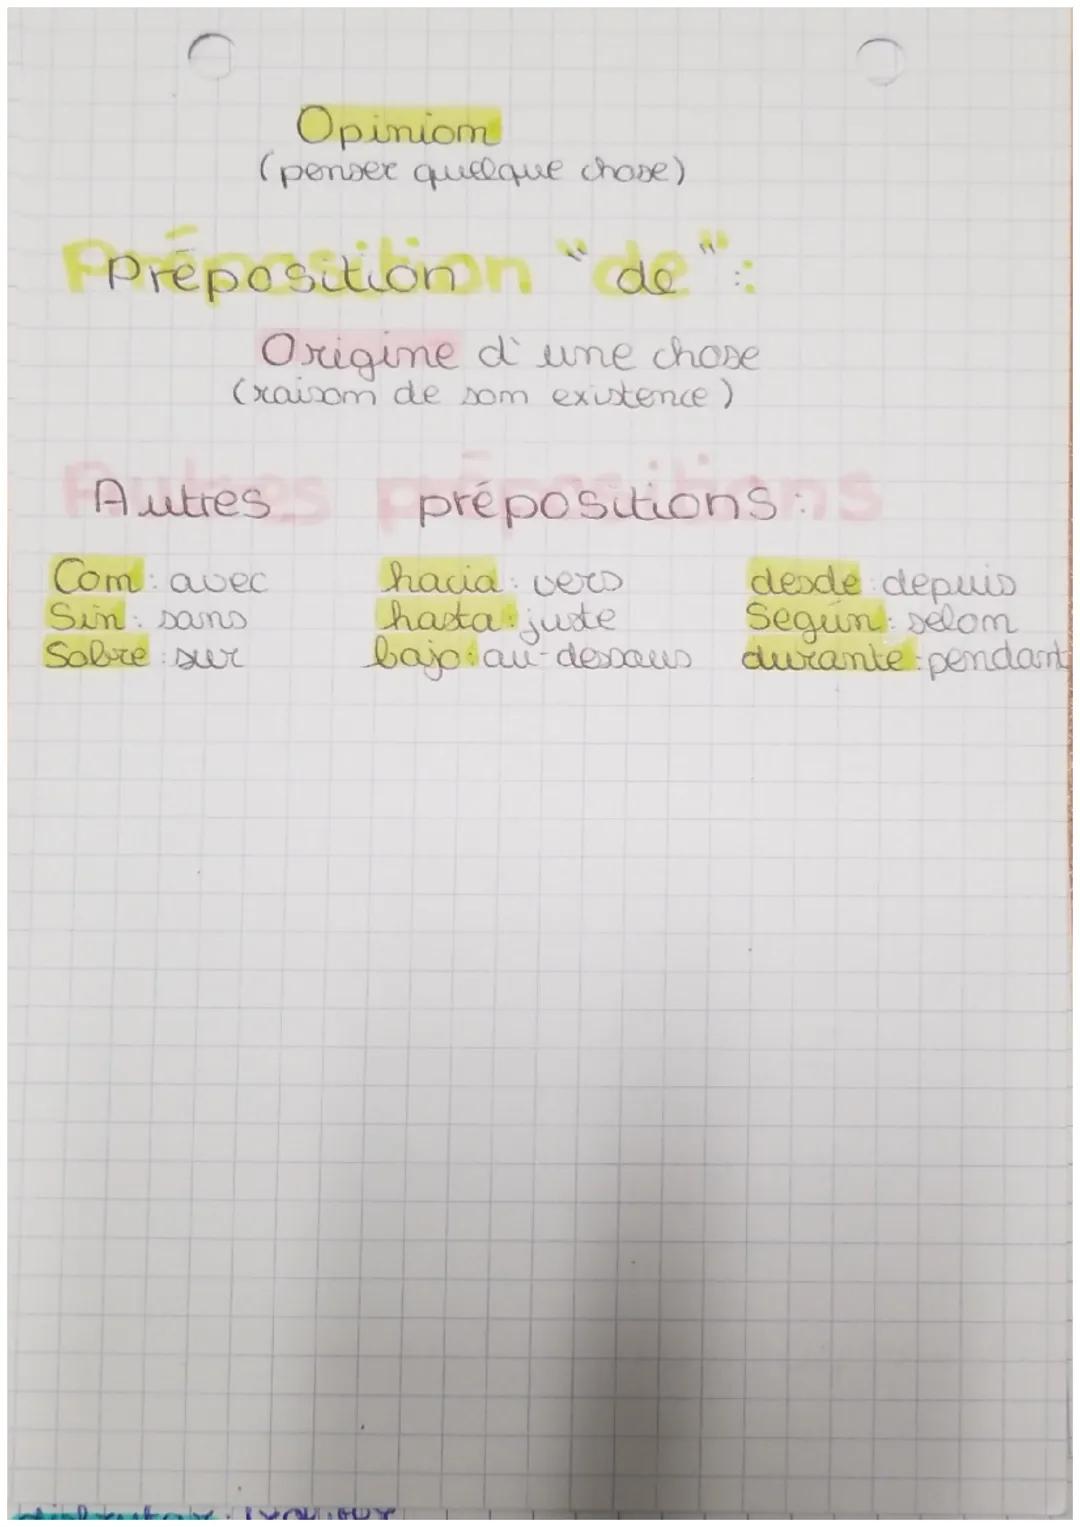 Opinion
(penser quelque chose)
Préposition "de":
Origine d'une chose
(raison de son existence)
Autres prépositions:
Con: avec hacia: vers desde: depuis
Sin: sans hasta: juste Según: selon
Sobre: sur bajo: au-dessous durante: pendant